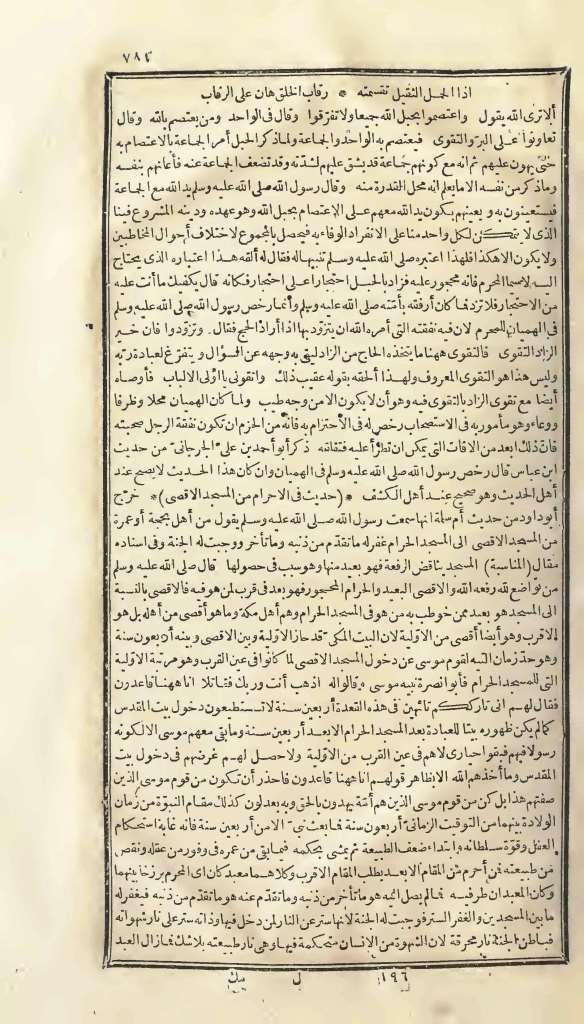 ٧٨٢
اذا الحمل الثقيل تقسمته * رقاب الخلق هان على الرقاب
ألا ترى الله يقول واعتصموا بحبل الله جميعا ولا تفرقوا وقال فى الواحد ومن يعتصم بالله وقال
تعاونوا على البر والتقوى فيعتصم به الواحد والجماعة ولما ذكر الحبل أمر الجماعة بالاعتصام به
حتى يهون عليهم ثم انه مع كونهم جماعة قد يشق عليهم لشدته وقد تضعف الجماعة عنه فأعانهم بنفسه
وما ذكر من نفسه الا ما يعلم انه محل القدرة منه وقال رسول الله صلى الله عليه وسلم يد الله مع الجماعة
فيستعينون به ويعينهم بكون يد الله معهم على الاعتصام بحبل الله وهو عهده ودينه المشروع فينا
الذى لا يتمكن لكل واحد منا على الانفراد الوفاء به فيحصل بالمجموع لاختلاف أحوال المخاطبين
ولا يكون الا هكذا فلهذا اعتبره صلى الله عليه وسلم تنبيها له فقال له ألقه هذا اعتباره الذى يحتاج
اليه لا سيما المحرم فانه محجور عليه فزاد بالحبل احتجارا على احتجار فكانه قال يكفيك ما أنت عليه
من الاحتجار فلا تزد فما كان أرفقه بأمته صلى الله عليه وسلم وانما رخص رسول الله صلى الله عليه وسلم
فى الهميان للمحرم لان فيه نفقته التى أمره الله ان يتزود بها اذا أراد الحج فقال وتزودوا فان خير
الزاد التقوى فالتقوى ههنا ما يتخذه الحاج من الزاد ليقى به وجهه عن السؤال ويتفرغ لعبادة ربه
وليس هذا هو التقوى المعروف ولهذا ألحقه بقوله عقيب ذلك واتقونى يا أولى الالباب فأوصاه
أيضا مع تقوى الزاد بالتقوى فيه وهو أن لا يكون الا من وجه طيب ولما كان الهميان محلا وظرفا
ووعاء وهو مأمور به فى الاستصحاب رخص له فى الاحتزام به فانه من الحزم ان تكون نفقة الرجل صحبته
فان ذلك أبعد من الآفات التى يمكن ان تطرأ عليه فتتلفه ذكر أبو أحمد بن على الجرجانى من حديث
ابن عباس قال رخص رسول الله صلى الله عليه وسلم فى الهميان وان كان هذا الحديث لا يصح عند
أهل الحديث وهو صحيح عند أهل الكشف *(حديث فى الاحرام من المسجد الاقصى)* خرج
أبو داود من حديث أم سلمة انها سمعت رسول الله صلى الله عليه وسلم يقول من أهل بحجة أو عمرة
من المسجد الاقصى الى المسجد الحرام غفر له ما تقدم من ذنبه وما تأخر ووجبت له الجنة وفى اسناده
مقال (المناسبة) المسجد يناقض الرفعة فهو بعد منها وهو سبب فى حصولها قال صلى الله عليه وسلم
من تواضع لله رفعه الله والاقصى البعيد والحرام المحجور فهو بعد فى قرب لمن هو فيه فالاقصى بالنسبة
الى المسجد هو بعيد ممن خوطب به من هو فى المسجد الحرام وهم أهل مكة وما هو أقصى من أهله بل هو
لاقرب وهو أيضا أقصى من الاولية لان البيت المكى قد حاز الاولية وبين الاقصى وبينه أربعون سنة
وهو حد زمان التيه لقوم موسى عن دخول المسجد الاقصى لما كانوا فى عين القرب وهو مرتبة الاولية
التى للمسجد الحرام فأبوا نصرة نبيه موسى وقالوا له اذهب أنت وربك فقاتلا انا ههنا قاعدون
فقال لهم انى تارككم تائهين فى هذه القعدة أربعين سنة لا تستطيعون دخول بيت المقدس
كما لم يكن ظهوره بيتا للعبادة بعد المسجد الحرام الا بعد أربعين سنة وما بقى معهم موسى الا لكونه
رسولا فيهم فبقوا حيارى لا هم فى عين القرب من الاولية ولا حصل لهم غرضهم فى دخول بيت
المقدس وما أخذهم الله الا ظاهر قولهم انا ههنا قاعدون فاحذر أن تكون من قوم موسى الذين
صفتهم هذا بل كن من قوم موسى الذين هم أمة يهدون بالحق وبه يعدلون كذلك مقام النبوة من زمان
الولادة بينهما من التوقيت الزمانى أربعون سنة فما بعث نبى الا من أربعين سنة فانه غاية استحكام
العقل وقوة سلطانه وابتداء ضعف الطبيعة ثم يمشى بحكمه فيما بقى من عمره فى وفور من عقله ونقص
من طبيعته فمن أحرم من المقام الابعد يطلب المقام الاقرب وكلاهما معبد كان اى المحرم برزخا بينهما
وكان المعبدان طرفيه فما لم يصل اليه هو ما تأخر من ذنبه وما تقدم عنه هو ما تقدم من ذنبه فيغفر له
ما بين المسجدين والغفر الستر فوجبت له الجنة لانها ستر عن النار لمن دخل فيها وذاته ستر على نار شهواته
فباطن الجنة نار محرقة لان الشهوة من الانسان متحكمة فيها وهى نار طبيعته بلا شك فما زال العبد
١٩٦ ل